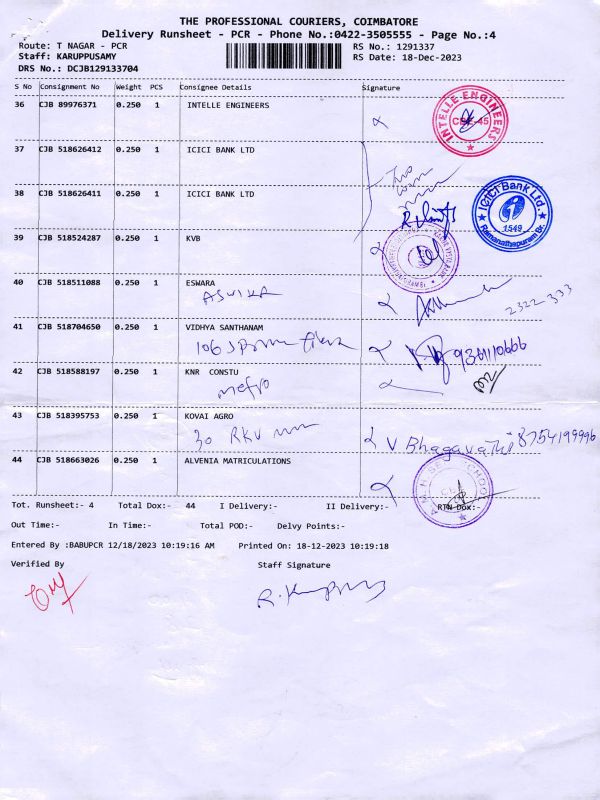 THE PROFESSIONAL COURIERS, COIMBATORE
Delivery Runsheet - PCR - Phone No.:0422-3505555 - Page No.:4
Route: T NAGAR - PCR
RS No.: 1291337
Staff: KARUPPUSAMY
RS Date: 18-Dec-2023
DRS No.: DCJB129133704
S No Consignment No Weight PCS Consignee Details Signature
36 CJB 89976371 0.250 1 INTELLE ENGINEERS
INTELLE ENGINEERS
37 CJB 518626412 0.250 1 ICICI BANK LTD
38 CJB 518626411 0.250 1 ICICI BANK LTD
ICICI Bank Ltd.
1549
Ramanathapuram Br.
39 CJB 518524287 0.250 1 KVB
40 CJB 518511088 0.250 1 ESWARA
2322-333
41 CJB 518704650 0.250 1 VIDHYA SANTHANAM
106
9361110666
42 CJB 518588197 0.250 1 KNR CONSTU
metro
43 CJB 518395753 0.250 1 KOVAI AGRO
30 RKV
V Bhagavathi 8754199996
44 CJB 518663026 0.250 1 ALVENIA MATRICULATIONS
Tot. Runsheet:- 4 Total Dox:- 44 I Delivery:- II Delivery:- RTN Dox:-
Out Time:- In Time:- Total POD:- Delvy Points:-
Entered By :BABUPCR 12/18/2023 10:19:16 AM Printed On: 18-12-2023 10:19:18
Verified By Staff Signature